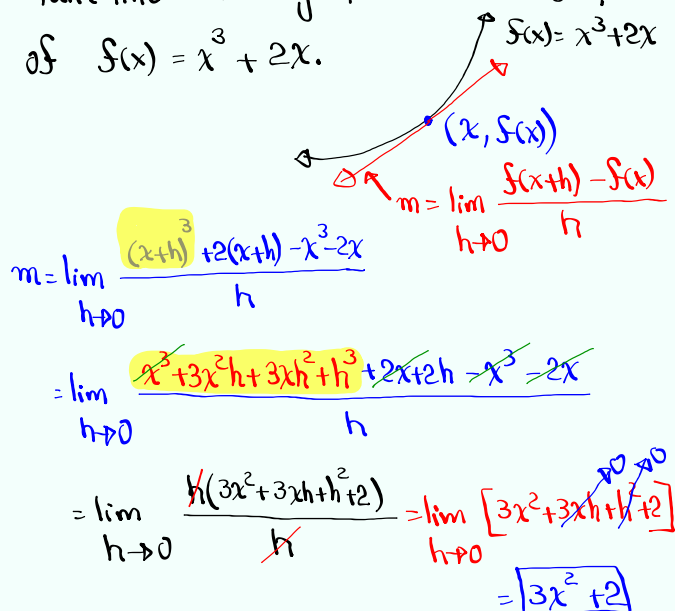 of f(x) = x³ + 2x.
f(x) = x³+2x
(x, f(x))
m = lim h→0 (f(x+h) - f(x))/h
m = lim h→0 ((x+h)³ + 2(x+h) - x³ - 2x)/h
= lim h→0 (x³ + 3x²h + 3xh² + h³ + 2x + 2h - x³ - 2x)/h
= lim h→0 h(3x² + 3xh + h² + 2)/h = lim h→0 [3x² + 3xh + h² + 2]
0 0
= 3x² + 2